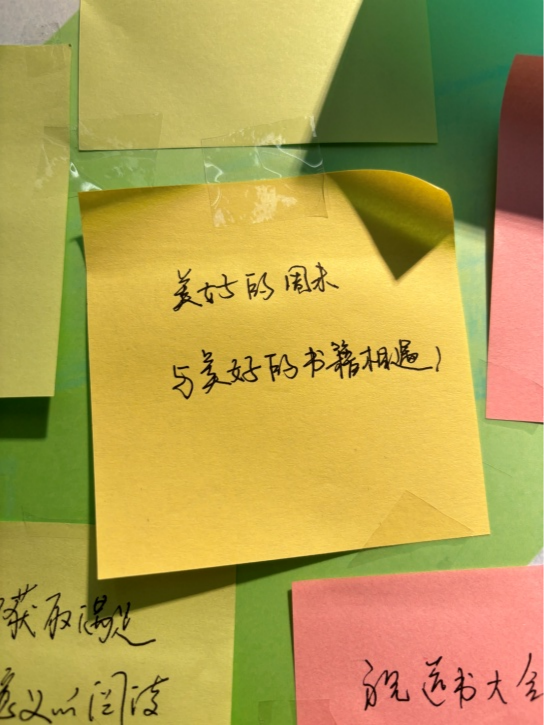 美好的周末
与美好的书籍相遇！
获取满足
意义的阅读
祝送书大会